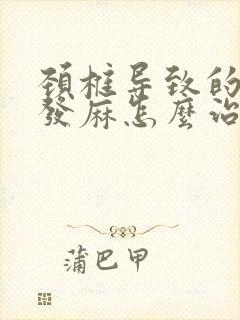 頚椎导致的
發麻怎麼治
蒲巴甲